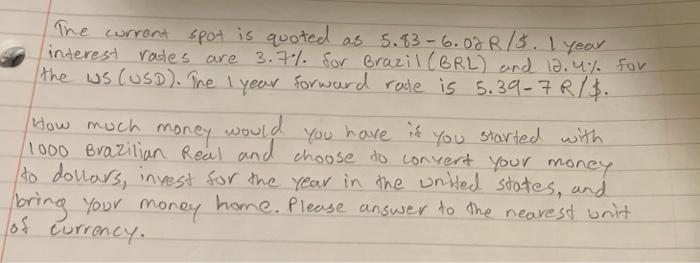 The current spot is quoted as 5.83-6.02 R/$. 1 year
interest rates are 3.7% for Brazil (BRL) and 12.4% for
the US (USD). The 1 year forward rate is 5.39-7 R/$.
How much money would you have if you started with
1000 Brazilian Real and choose to convert your money
to dollars, invest for the year in the united states, and
bring your money home. Please answer to the nearest unit
of currency.